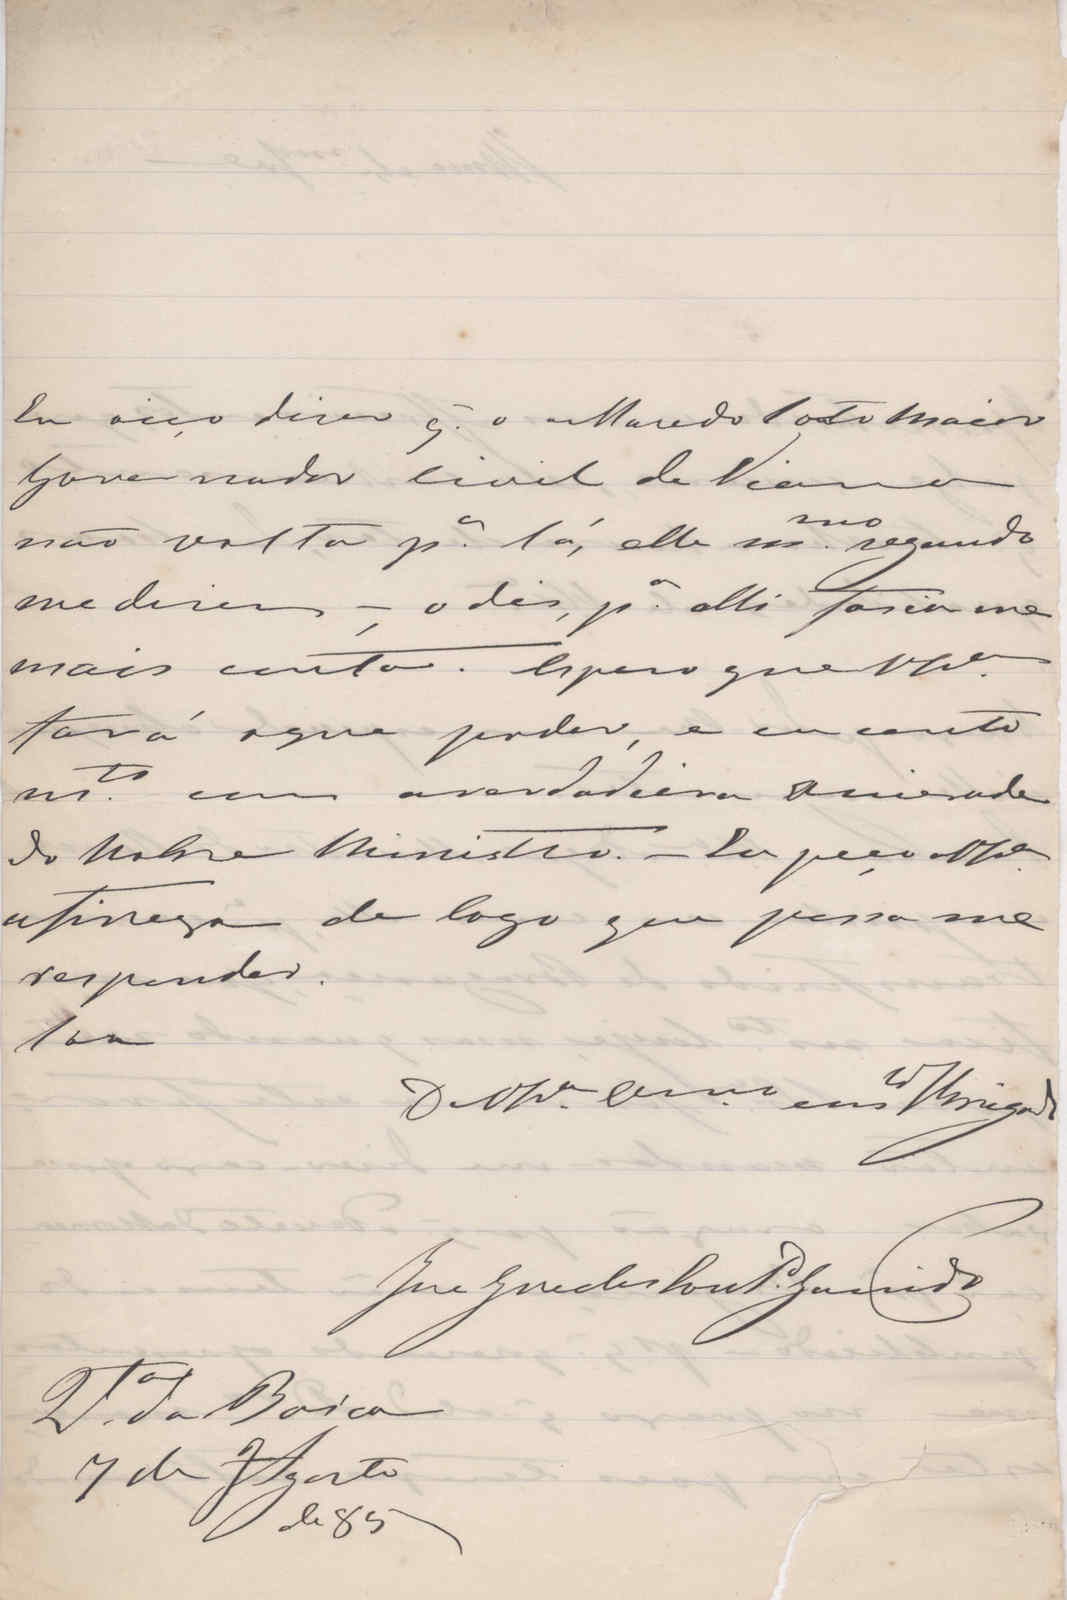 Eu oiço diser q. o Macedo Sotto Maior
Governador Civil de Vianna
não volta p.a lá, elle m.mo segundo
me diserem, – o dis, p.a alli fasia me
mais conta. Espero que V Ex.a
fará o que poder, e eu conto
m.to com a verdadeira amisade
do Nobre Ministro. – Eu peço a V Ex.a
a finega de logo que possa me
responder.
Sou
De V Ex.a Am.o
José Guedes Garrido
Q.ta da Boiça
7 de Agosto
de 85